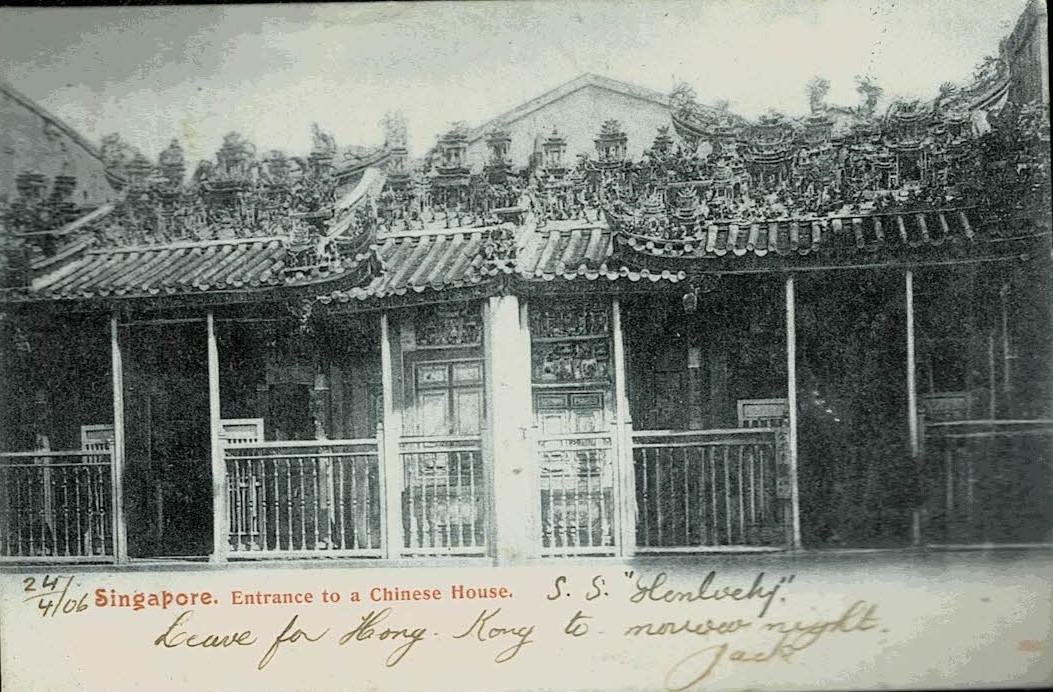 24/4/06 Singapore. Entrance to a Chinese House. S. S. "Glenlochy".
Leave for Hong-Kong to-morrow night.
Jack